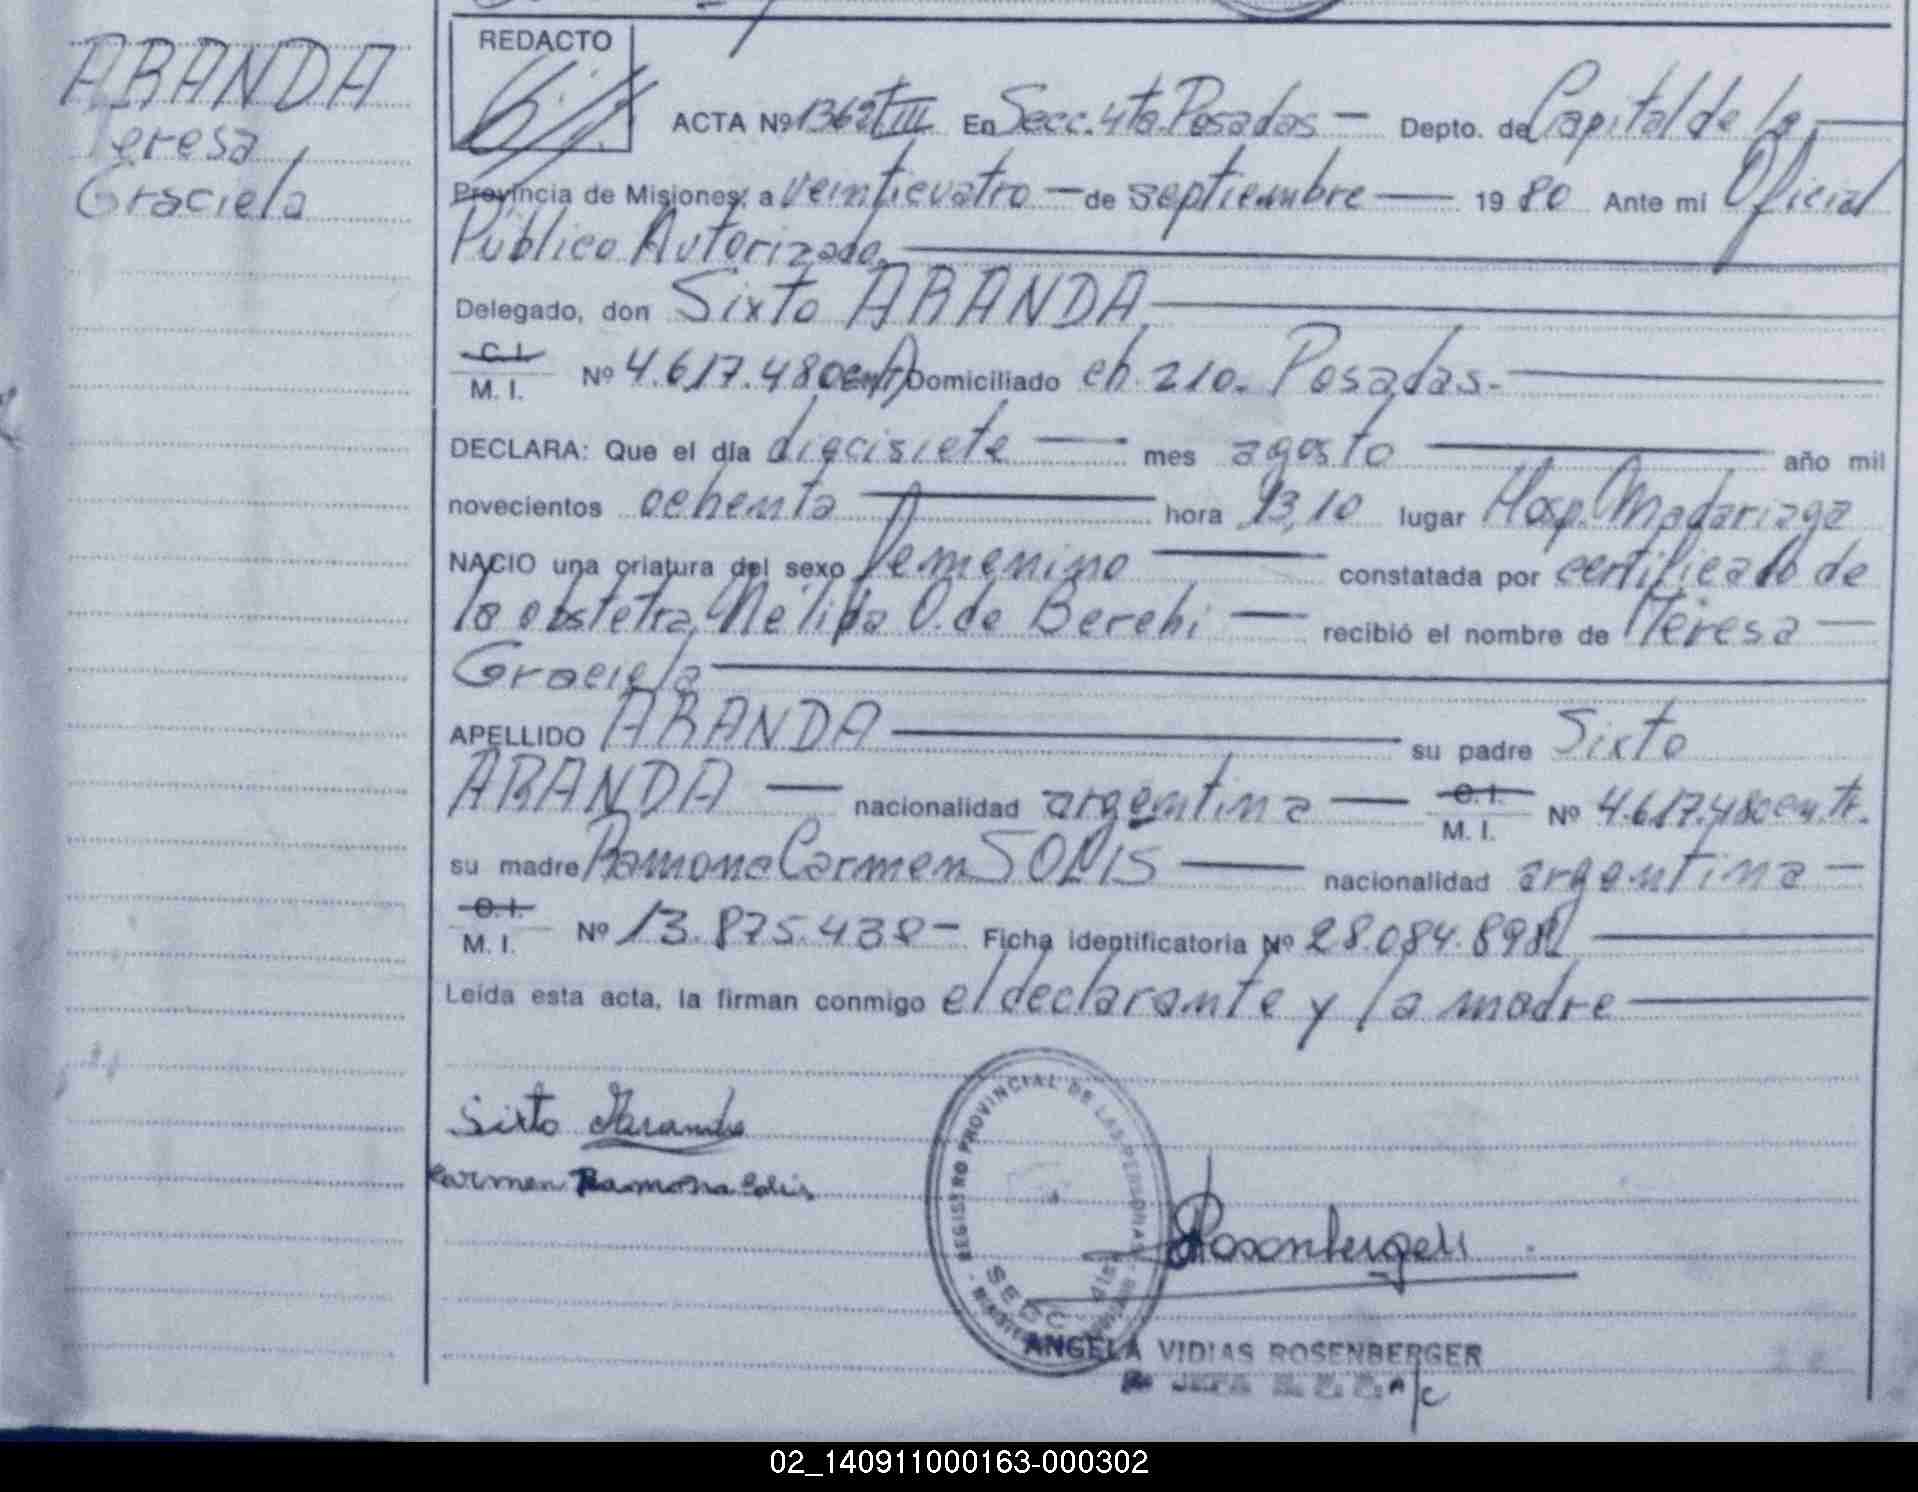 ARANDA
Teresa
Graciela
REDACTO
ACTA Nº 1362 T III En Secc. 4ta. Posadas — Depto. de Capital de la
Provincia de Misiones, a veinticuatro — de septiembre — 19 80 Ante mi Oficial
Público Autorizado.
Delegado, don Sixto ARANDA
C. I.
M. I. Nº 4.617.480 Domiciliado ch. 210. Posadas.-
DECLARA: Que el día diecisiete — mes agosto — año mil
novecientos ochenta — hora 13,10 lugar Hosp. Madariaga
NACIO una criatura del sexo femenino — constatada por certificado de
la obstetra, Nélida O. de Berehi — recibió el nombre de Teresa —
Graciela
APELLIDO ARANDA — su padre Sixto
ARANDA — nacionalidad argentina — C. I.
M. I. Nº 4.617.480
su madre Ramona Carmen SOLIS — nacionalidad argentina —
C. I.
M. I. Nº 13.875.438 — Ficha identificatoria Nº 28.084.898
Leída esta acta, la firman conmigo el declarante y la madre
Sixto Aranda
Carmen Ramona Solis
REGISTRO PROVINCIAL DE LAS PERSONAS
SECC. 4ta
Rosenberger
ANGELA VIDIAS ROSENBERGER
JEFA A/C
02_140911000163-000302